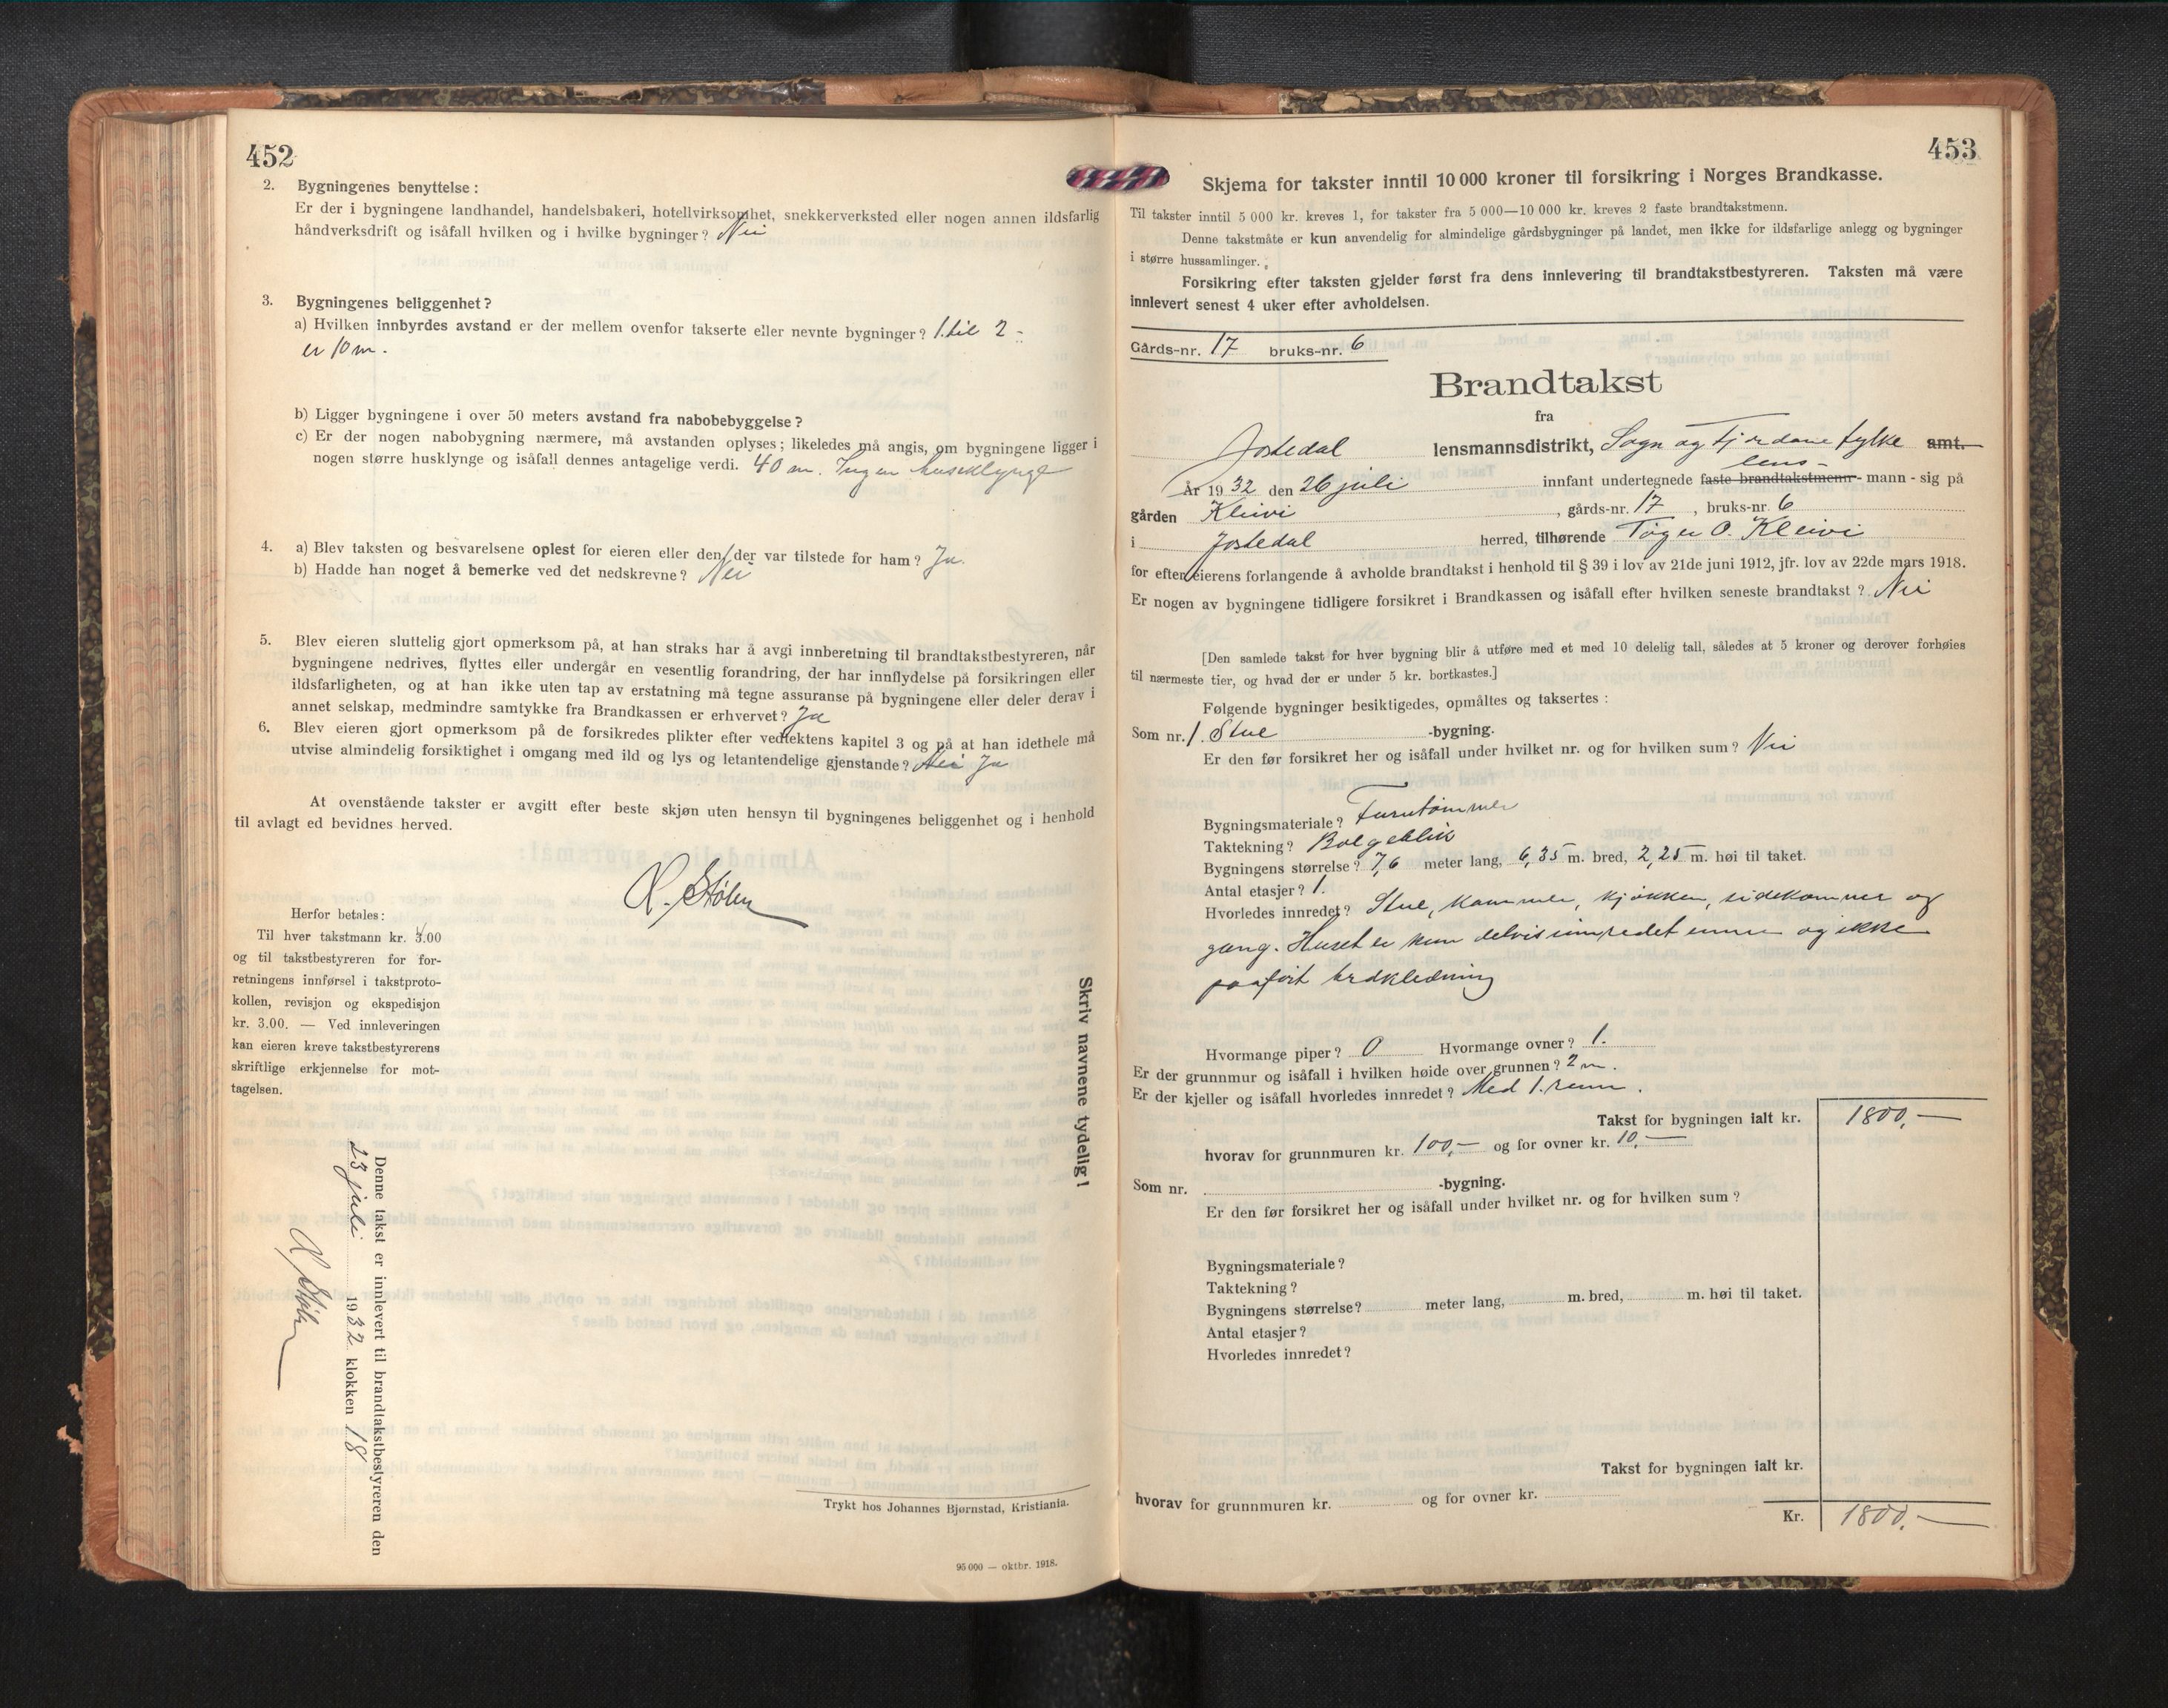 452
2. Bygningenes benyttelse:
Er der i bygningene landhandel, handelsbakeri, hotellvirksomhet, snekkerverksted eller nogen annen ildsfarlig
håndverksdrift og isåfall hvilken og i hvilke bygninger? Nei
3. Bygningenes beliggenhet?
a) Hvilken innbyrdes avstand er der mellem ovenfor takserte eller nevnte bygninger? 1 til 2 -
er 10 m.
b) Ligger bygningene i over 50 meters avstand fra nabobebyggelse?
c) Er der nogen nabobygning nærmere, må avstanden oplyses; likeledes må angis, om bygningene ligger i
nogen større husklynge og isåfall dennes antagelige verdi. 40 m. Ingen huseklynge
4. a) Blev taksten og besvarelsene oplest for eieren eller den, der var tilstede for ham? Ja.
b) Hadde han noget å bemerke ved det nedskrevne? Nei
5. Blev eieren sluttelig gjort opmerksom på, at han straks har å avgi innberetning til brandtakstbestyreren, når
bygningene nedrives, flyttes eller undergår en vesentlig forandring, der har innflydelse på forsikringen eller
ildsfarligheten, og at han ikke uten tap av erstatning må tegne assuranse på bygningene eller deler derav i
annet selskap, medmindre samtykke fra Brandkassen er erhvervet? Ja
6. Blev eieren gjort opmerksom på de forsikredes plikter efter vedtektens kapitel 3 og på at han idethele må
utvise almindelig forsiktighet i omgang med ild og lys og letantendelige gjenstande? Nei Ja
At ovenstående takster er avgitt efter beste skjøn uten hensyn til bygningenes beliggenhet og i henhold
til avlagt ed bevidnes herved.
Stølen
Herfor betales:
Til hver takstmann kr. 3.00
og til takstbestyreren for for-
retningens innførsel i takstproto-
kollen, revisjon og ekspedisjon
kr. 3.00. — Ved innleveringen
kan eieren kreve takstbestyrerens
skriftlige erkjennelse for mot-
tagelsen.
Skriv navnene tydelig!
Denne takst er innlevert til brandtakstbestyreren den
23 juli 1932 klokken 18
Stølen
Trykt hos Johannes Bjørnstad, Kristiania.
95 000 — oktbr. 1918.
453
Skjema for takster inntil 10 000 kroner til forsikring i Norges Brandkasse.
Til takster inntil 5 000 kr. kreves 1, for takster fra 5 000—10 000 kr. kreves 2 faste brandtakstmenn.
Denne takstmåte er kun anvendelig for almindelige gårdsbygninger på landet, men ikke for ildsfarlige anlegg og bygninger
i større hussamlinger.
Forsikring efter taksten gjelder først fra dens innlevering til brandtakstbestyreren. Taksten må være
innlevert senest 4 uker efter avholdelsen.
Gårds-nr. 17 bruks-nr. 6
Brandtakst
fra
Jostedal lensmannsdistrikt, Sogn og Fjordane fylke amt.
lens-
År 1932 den 26 juli innfant undertegnede faste brandtakstmenn - mann - sig på
gården Kleivi, gårds-nr. 17, bruks-nr. 6
i Jostedal herred, tilhørende Tøger O. Kleivi
for efter eierens forlangende å avholde brandtakst i henhold til § 39 i lov av 21de juni 1912, jfr. lov av 22de mars 1918.
Er nogen av bygningene tidligere forsikret i Brandkassen og isåfall efter hvilken seneste brandtakst? Nei
[Den samlede takst for hver bygning blir å utføre med et med 10 delelig tall, således at 5 kroner og derover forhøies
til nærmeste tier, og hvad der er under 5 kr. bortkastes.]
Følgende bygninger besiktigedes, opmåltes og taksertes:
Som nr. 1. Stue -bygning.
Er den før forsikret her og isåfall under hvilket nr. og for hvilken sum? Nei
Bygningsmateriale? Furutømmer
Taktekning? Bølgeblikk
Bygningens størrelse? 7,6 meter lang, 6,35 m. bred, 2,25 m. høi til taket.
Antal etasjer? 1.
Hvorledes innredet? Stue, kammer, kjøkken, sidekammer og
gang. Huset er kun delvis innredet ennu og ikke
paaført bordkledning
Hvormange piper? 0 Hvormange ovner? 1.
Er der grunnmur og isåfall i hvilken høide over grunnen? 2 m.
Er der kjeller og isåfall hvorledes innredet? Med 1. rum.
Takst for bygningen ialt kr. 1800,—
hvorav for grunnmuren kr. 100,— og for ovner kr. 10,—
Som nr. -bygning.
Er den før forsikret her og isåfall under hvilket nr. og for hvilken sum?
Bygningsmateriale?
Taktekning?
Bygningens størrelse? meter lang, m. bred, m. høi til taket.
Antal etasjer?
Hvorledes innredet?
Takst for bygningen ialt kr.
hvorav for grunnmuren kr. og for ovner kr.
Kr. 1800,—